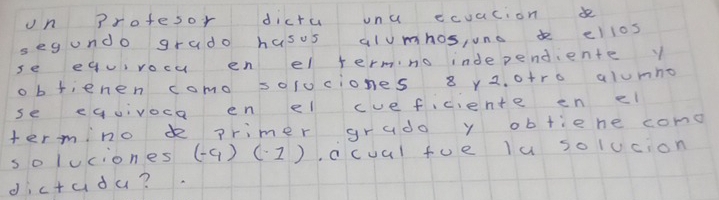 un Profesor dictu una ecuacion de
segundo grado hasus alumnos, uno de ellos
se equivocu en el termino independiente y
obtienen como soluciones 8 y 2. otro alumno
se equivoca en el cueficiente en el
termino de primer grado y obtiene como
soluciones (-9) (-1). ¿cual fue la solucion
dictada?.